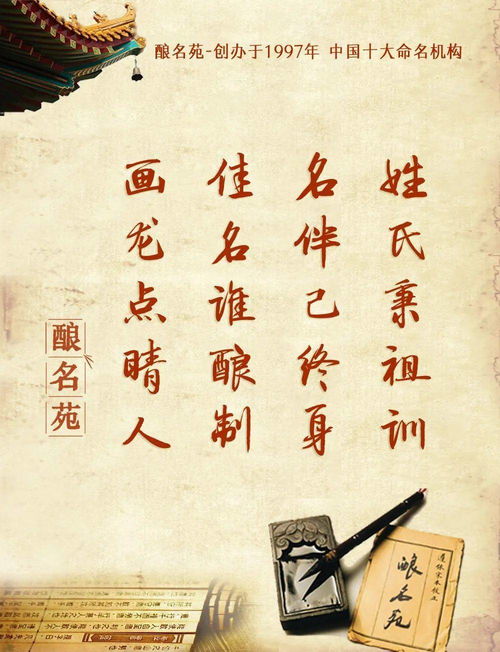 酿名苑-创办于1997年 中国十大命名机构
姓氏秉祖训
名伴己终身
佳名谁酿制
画龙点晴人
酿名苑
酿名苑